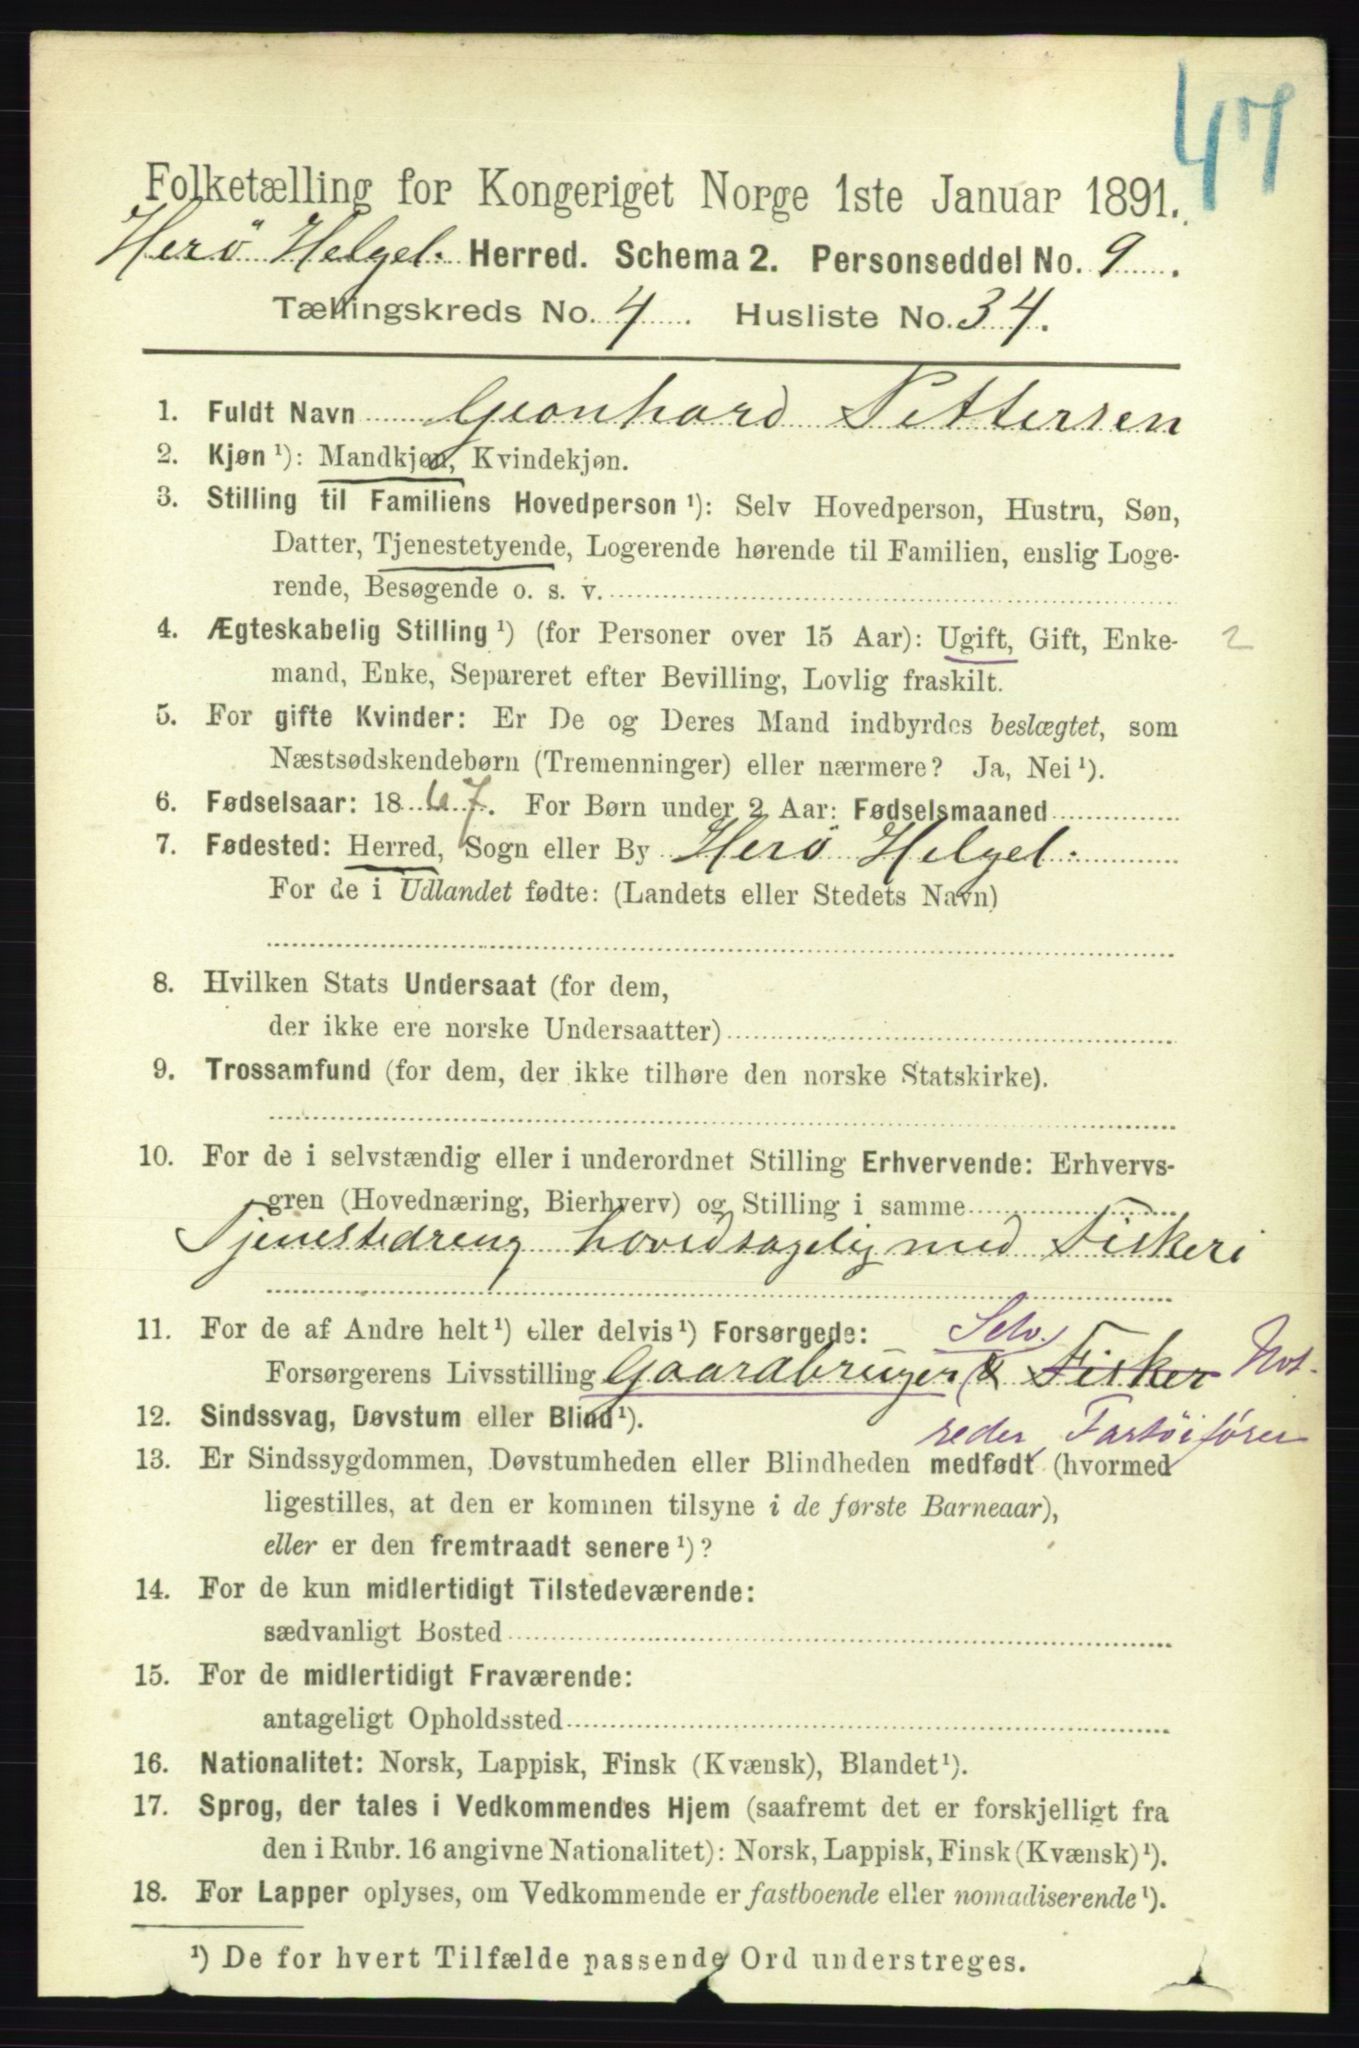 47
Folketælling for Kongeriget Norge 1ste Januar 1891.
Herö Helgel. Herred. Schema 2. Personseddel No. 9.
Tællingskreds No. 4. Husliste No. 34.
1. Fuldt Navn Geonhard Pettersen
2. Kjøn ¹): Mandkjøn, Kvindekjøn.
3. Stilling til Familiens Hovedperson ¹): Selv Hovedperson, Hustru, Søn,
Datter, Tjenestetyende, Logerende hørende til Familien, enslig Loge-
rende, Besøgende o. s. v.
4. Ægteskabelig Stilling ¹) (for Personer over 15 Aar): Ugift, Gift, Enke- 2
mand, Enke, Separeret efter Bevilling, Lovlig fraskilt.
5. For gifte Kvinder: Er De og Deres Mand indbyrdes beslægtet, som
Næstsødskendebørn (Tremenninger) eller nærmere? Ja, Nei ¹).
6. Fødselsaar: 1867. For Børn under 2 Aar: Fødselsmaaned
7. Fødested: Herred, Sogn eller By Herö Helgel.
For de i Udlandet fødte: (Landets eller Stedets Navn)
8. Hvilken Stats Undersaat (for dem,
der ikke ere norske Undersaatter)
9. Trossamfund (for dem, der ikke tilhøre den norske Statskirke).
10. For de i selvstændig eller i underordnet Stilling Erhvervende: Erhvervs-
gren (Hovednæring, Bierhverv) og Stilling i samme
Tjenestedreng hovedsagelig med Fiskeri
11. For de af Andre helt ¹) eller delvis ¹) Forsørgede: Selv.
Forsørgerens Livsstilling Gaardbruger & Fisker Not-
12. Sindssvag, Døvstum eller Blind ¹). reder, Fartöiförer
13. Er Sindssygdommen, Døvstumheden eller Blindheden medfødt (hvormed
ligestilles, at den er kommen tilsyne i de første Barneaar),
eller er den fremtraadt senere ¹)?
14. For de kun midlertidigt Tilstedeværende:
sædvanligt Bosted
15. For de midlertidigt Fraværende:
antageligt Opholdssted
16. Nationalitet: Norsk, Lappisk, Finsk (Kvænsk), Blandet ¹).
17. Sprog, der tales i Vedkommendes Hjem (saafremt det er forskjelligt fra
den i Rubr. 16 angivne Nationalitet): Norsk, Lappisk, Finsk (Kvænsk) ¹).
18. For Lapper oplyses, om Vedkommende er fastboende eller nomadiserende ¹).
¹) De for hvert Tilfælde passende Ord understreges.